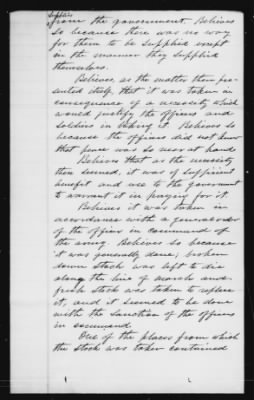 from the government. Believes
so because there was no way
for them to be supplied except
in the manner they supplied
themselves.
Believes, as the matter then pre-
sented itself, that it was taken in
consequence of a necessity which
would justify the officers and
soldiers in taking it. Believes so
because the officers did not know
that peace was so near at hand
Believes that as the necessity
then seemed, it was of sufficient
benefit and use to the government
to warrant it in paying for it
Believes it was taken in
accordance with a general order
of the officer in command of
the army. Believes so because
it was generally done; broken
down stock was left to die
along the line of march and
fresh stock was taken to replace
it, and it seemed to be done
with the sanction of the officers
in command.
One of the places from which
the stock was taken contained